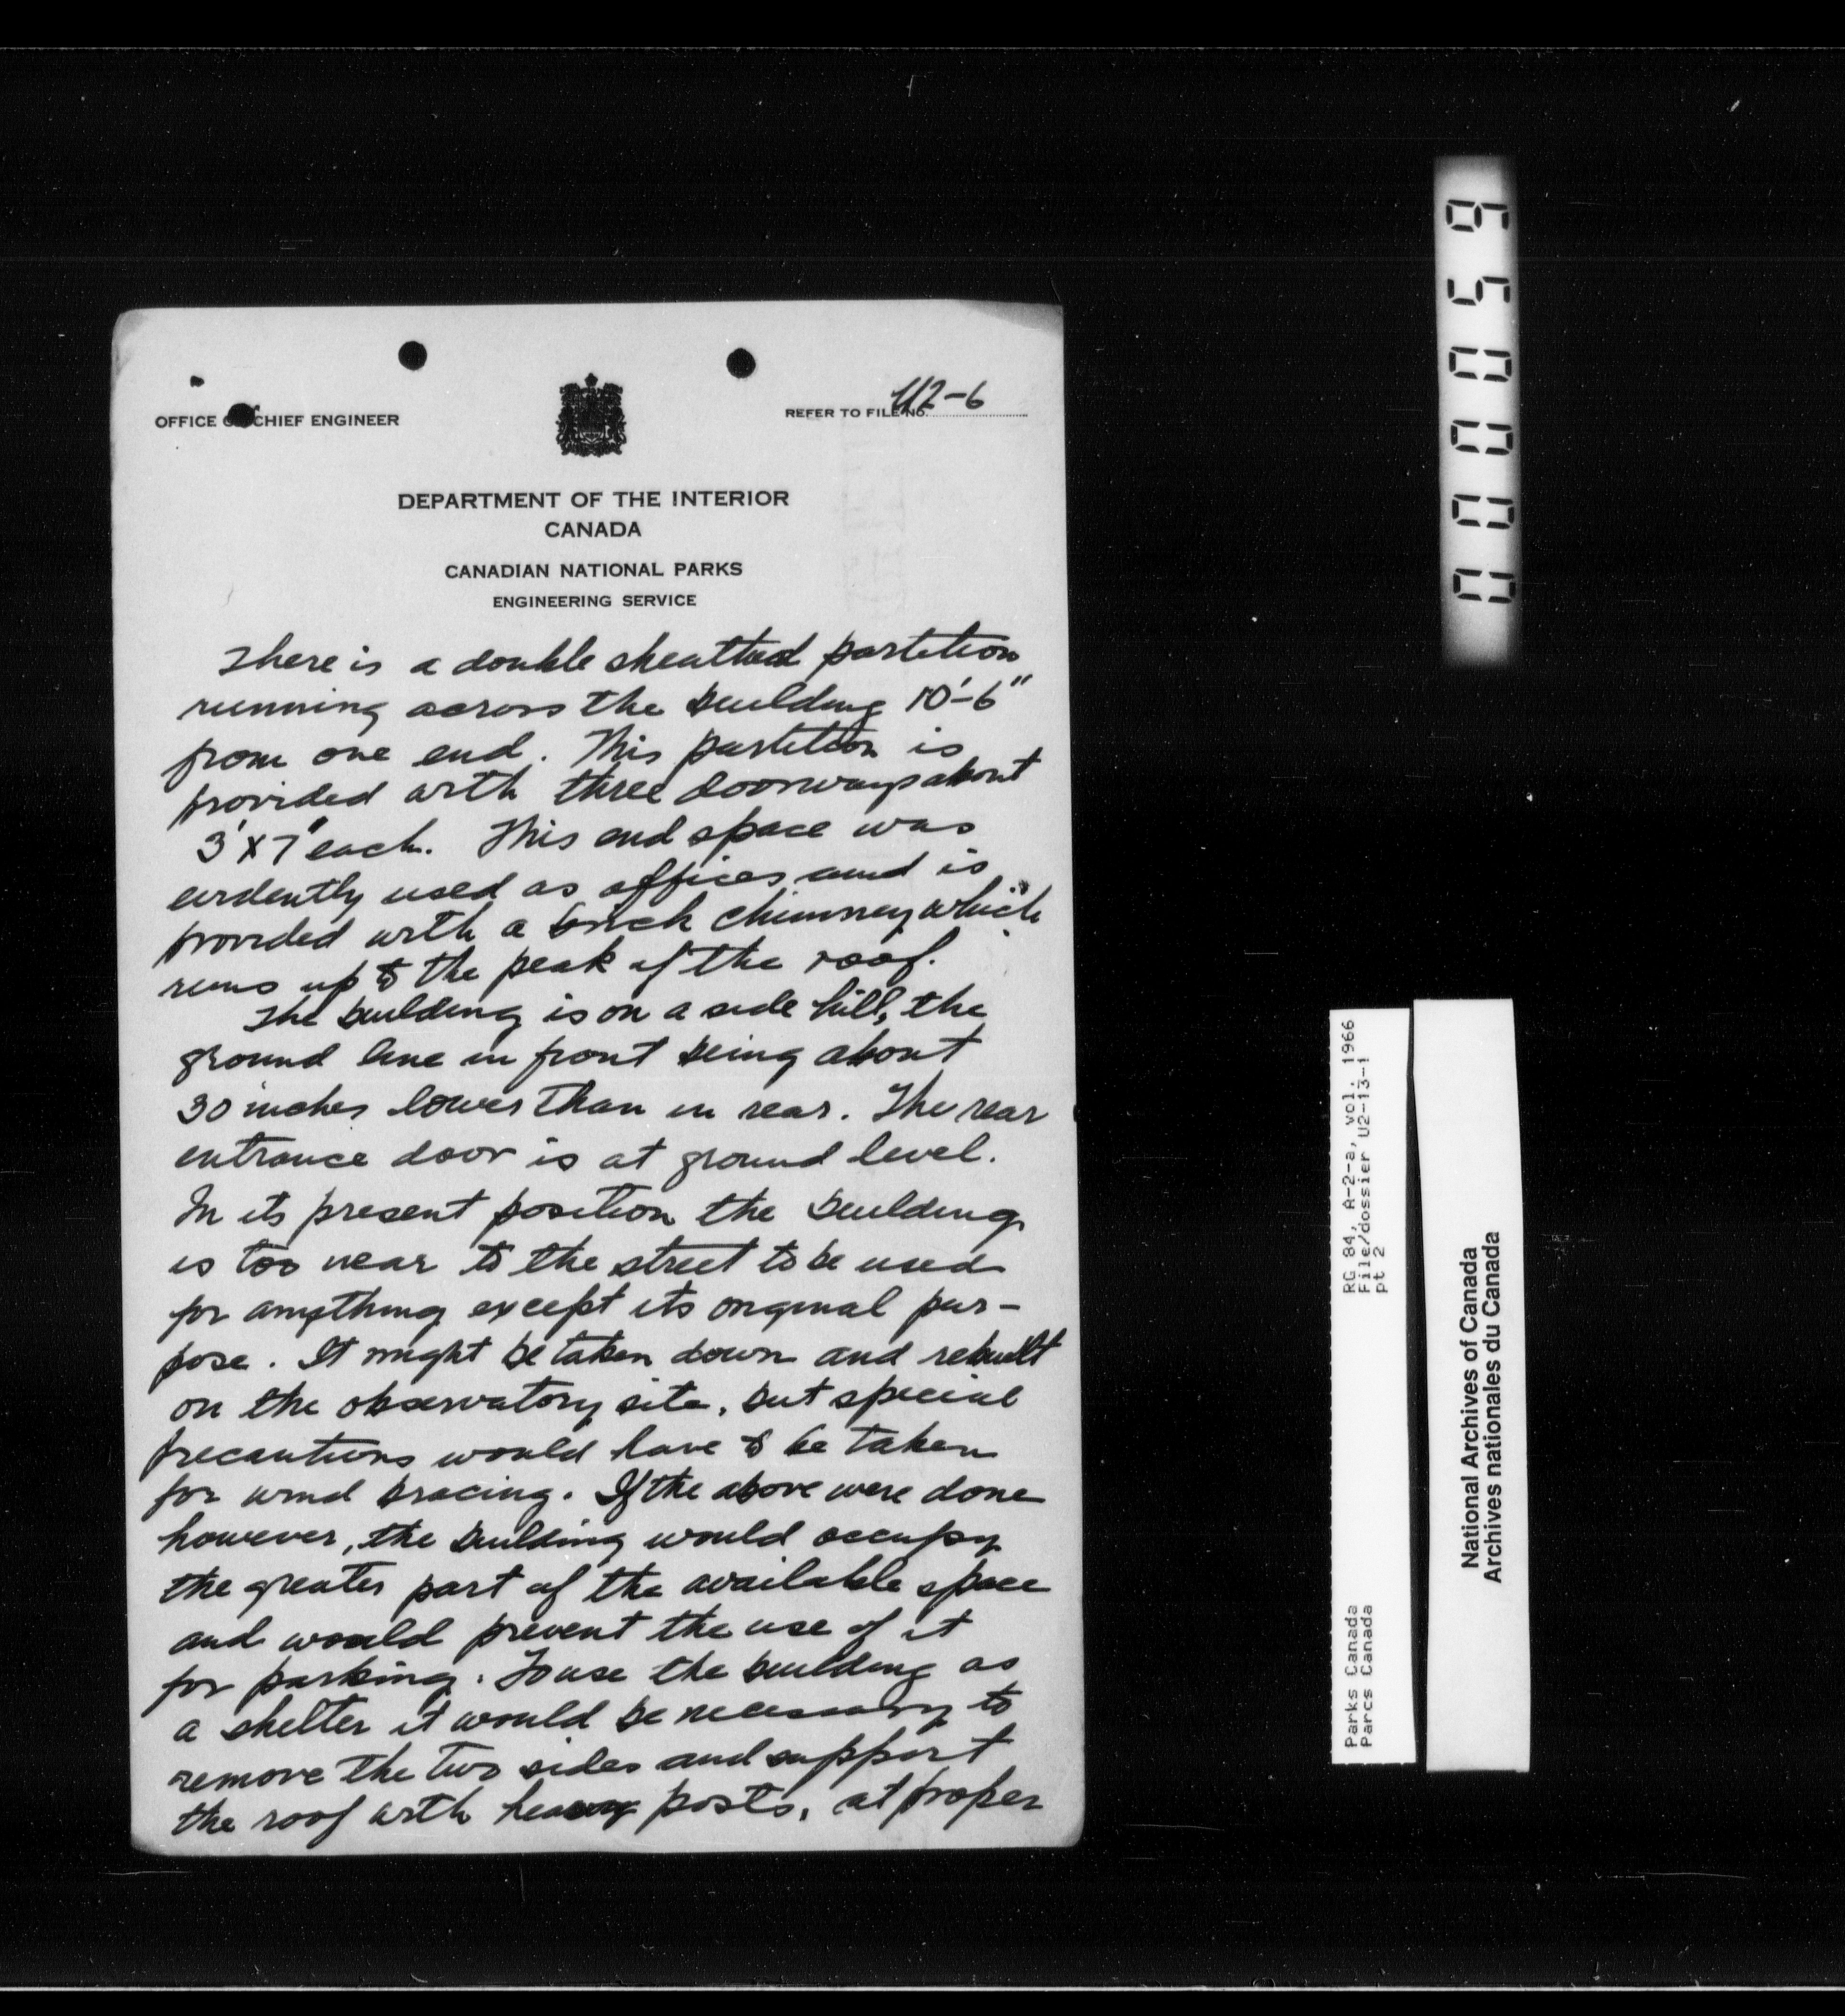 OFFICE OF CHIEF ENGINEER
REFER TO FILE NO. U2-6
DEPARTMENT OF THE INTERIOR
CANADA
CANADIAN NATIONAL PARKS
ENGINEERING SERVICE
There is a double sheatted partition
running across the building 10'-6"
from one end. This partition is
provided with three doorways about
3' x 7' each. This end space was
evidently used as offices and is
provided with a brick chimney which
runs up to the peak of the roof.
The building is on a side hill, the
ground line in front being about
30 inches lower than in rear. The rear
entrance door is at ground level.
In its present position the building
is too near to the street to be used
for anything except its original pur-
pose. It might be taken down and rebuilt
on the observatory site, but special
precautions would have to be taken
for wind bracing. If the above were done
however, the building would occupy
the greater part of the available space
and would prevent the use of it
for parking. To use the building as
a shelter it would be necessary to
remove the two sides and support
the roof with heavy posts, at proper
000059
RG 84, A-2-a, vol. 1966
File/dossier U2-13-1
pt 2
Parks Canada
Parcs Canada
National Archives of Canada
Archives nationales du Canada